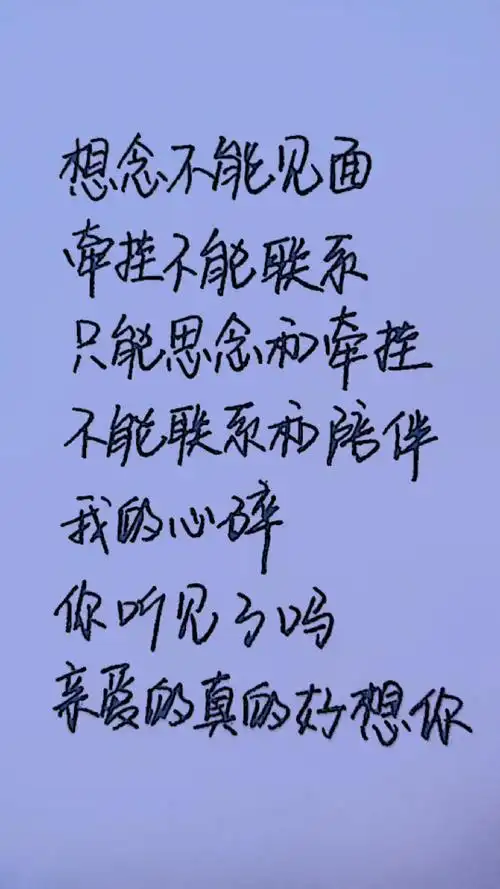 想念不能见面
牵挂不能联系
只能思念和牵挂
不能联系和陪伴
我的心碎
你听见了吗
亲爱的真的好想你